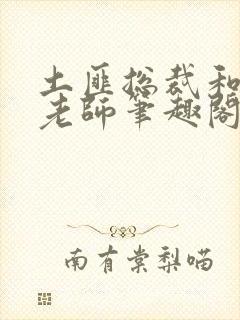 土匪总裁和
老師筆趣閣
南有棠梨喵